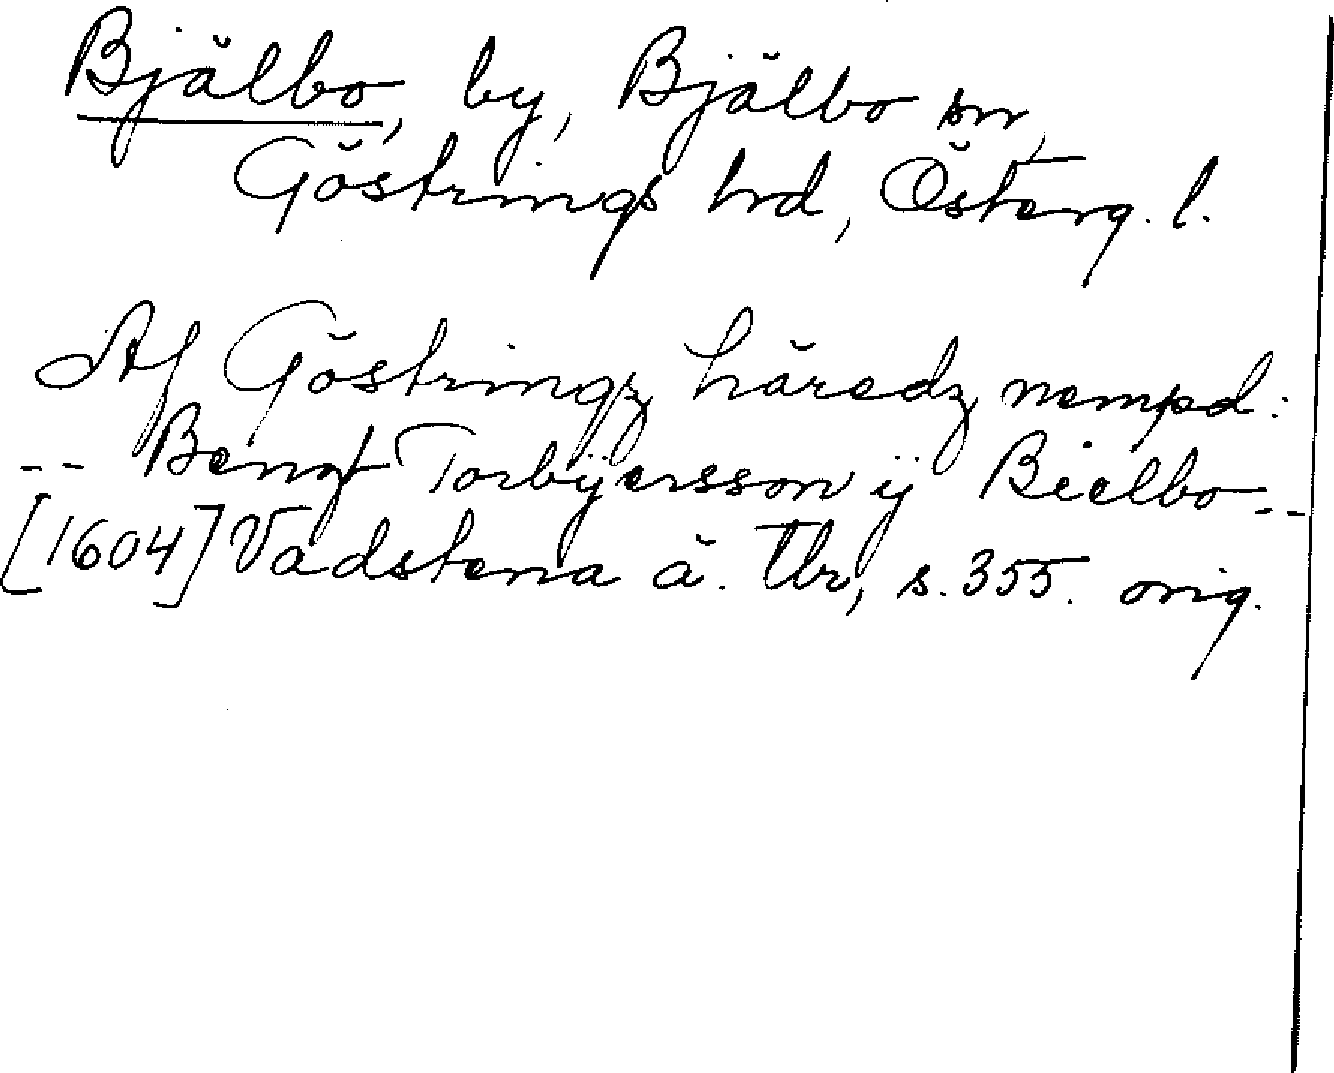 Bjälbo, by, Bjälbo sn,
Göstrings hrd, Österg. l.
Af Göstringz häredz nempd:
-- Bengt Torbÿersson ÿ Bielbo --
[1604] Vadstena ä. Tbr, s. 355. orig.